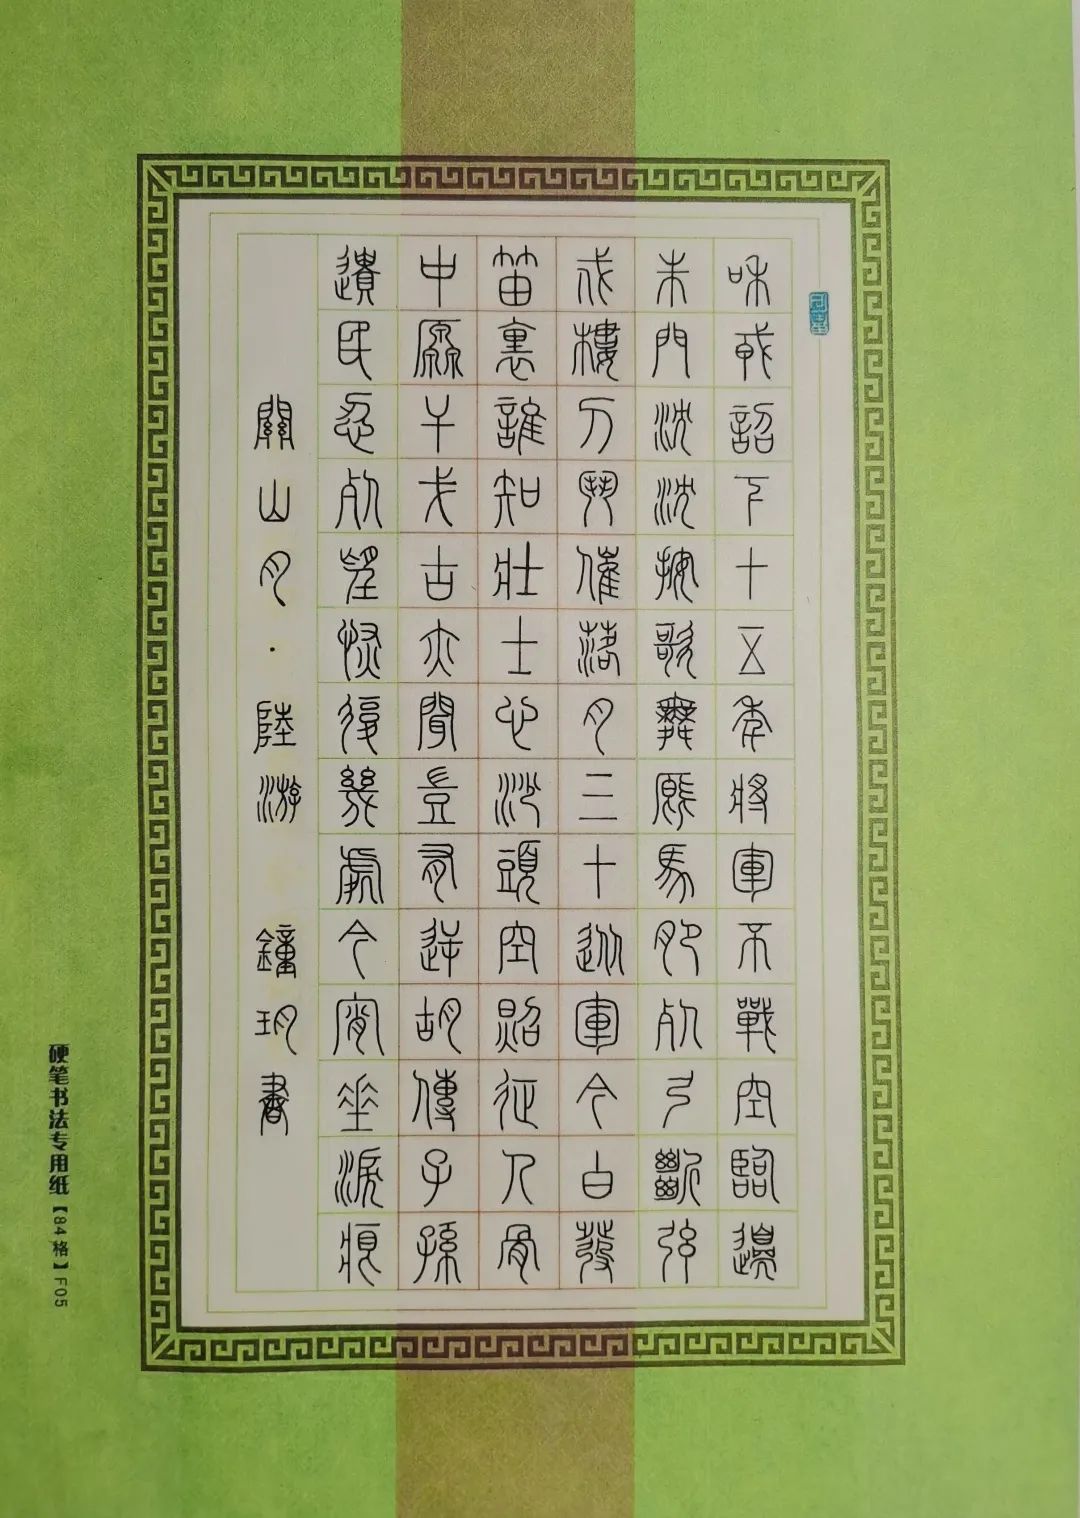 和戎詔下十五年將軍不戰空臨邊
朱門沈沈按歌舞廄馬肥死弓斷弦
戍樓刁斗催落月三十從軍今白發
笛裏誰知壯士心沙頭空照征人骨
中原干戈古亦聞豈有逆胡傳子孫
遺民忍死望恢復幾處今宵垂淚痕
關山月·陸游 鐘玥書
硬笔书法专用纸【84格】F05